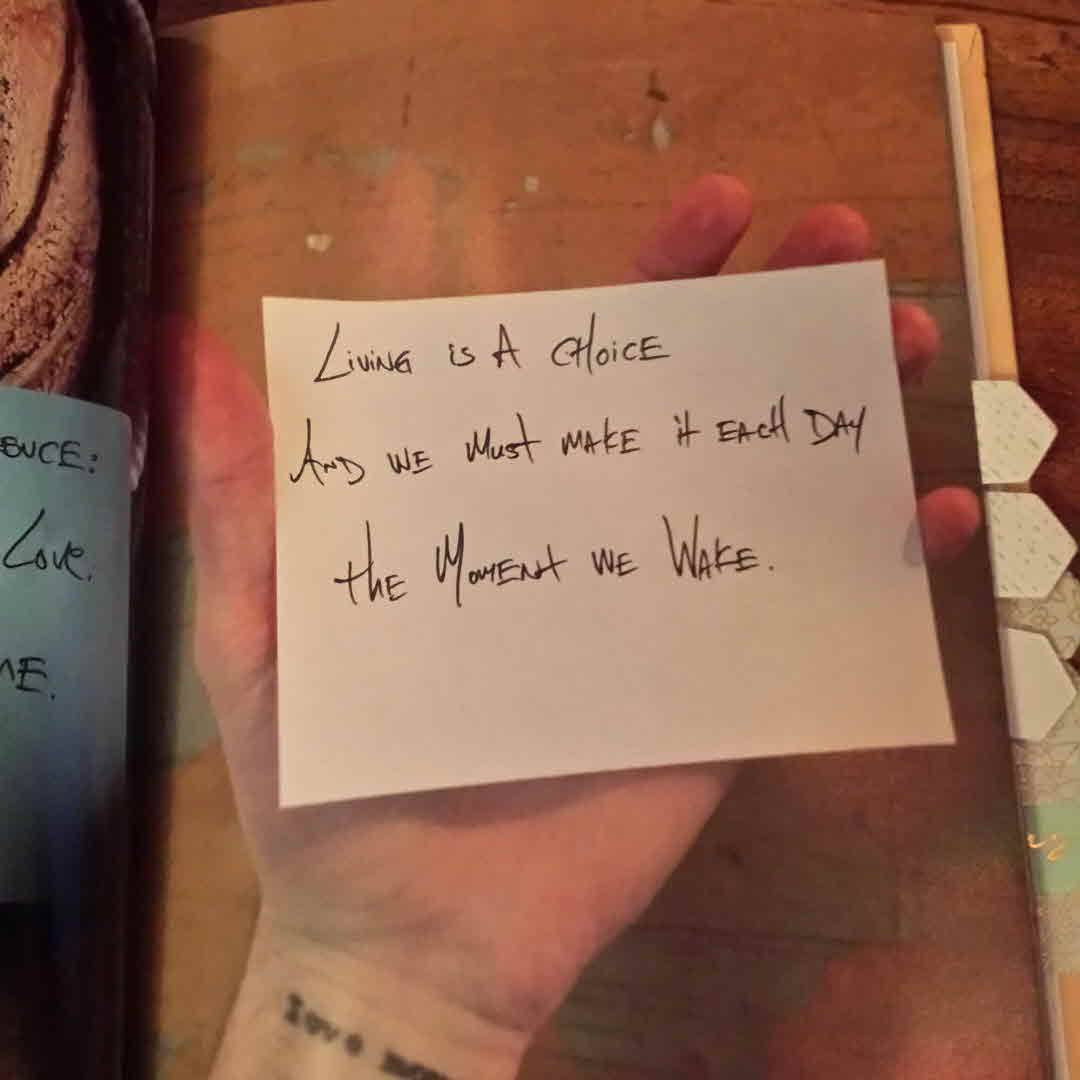 Living is A Choice
And we Must make it Each Day
the Moment we Wake.
Love.
love